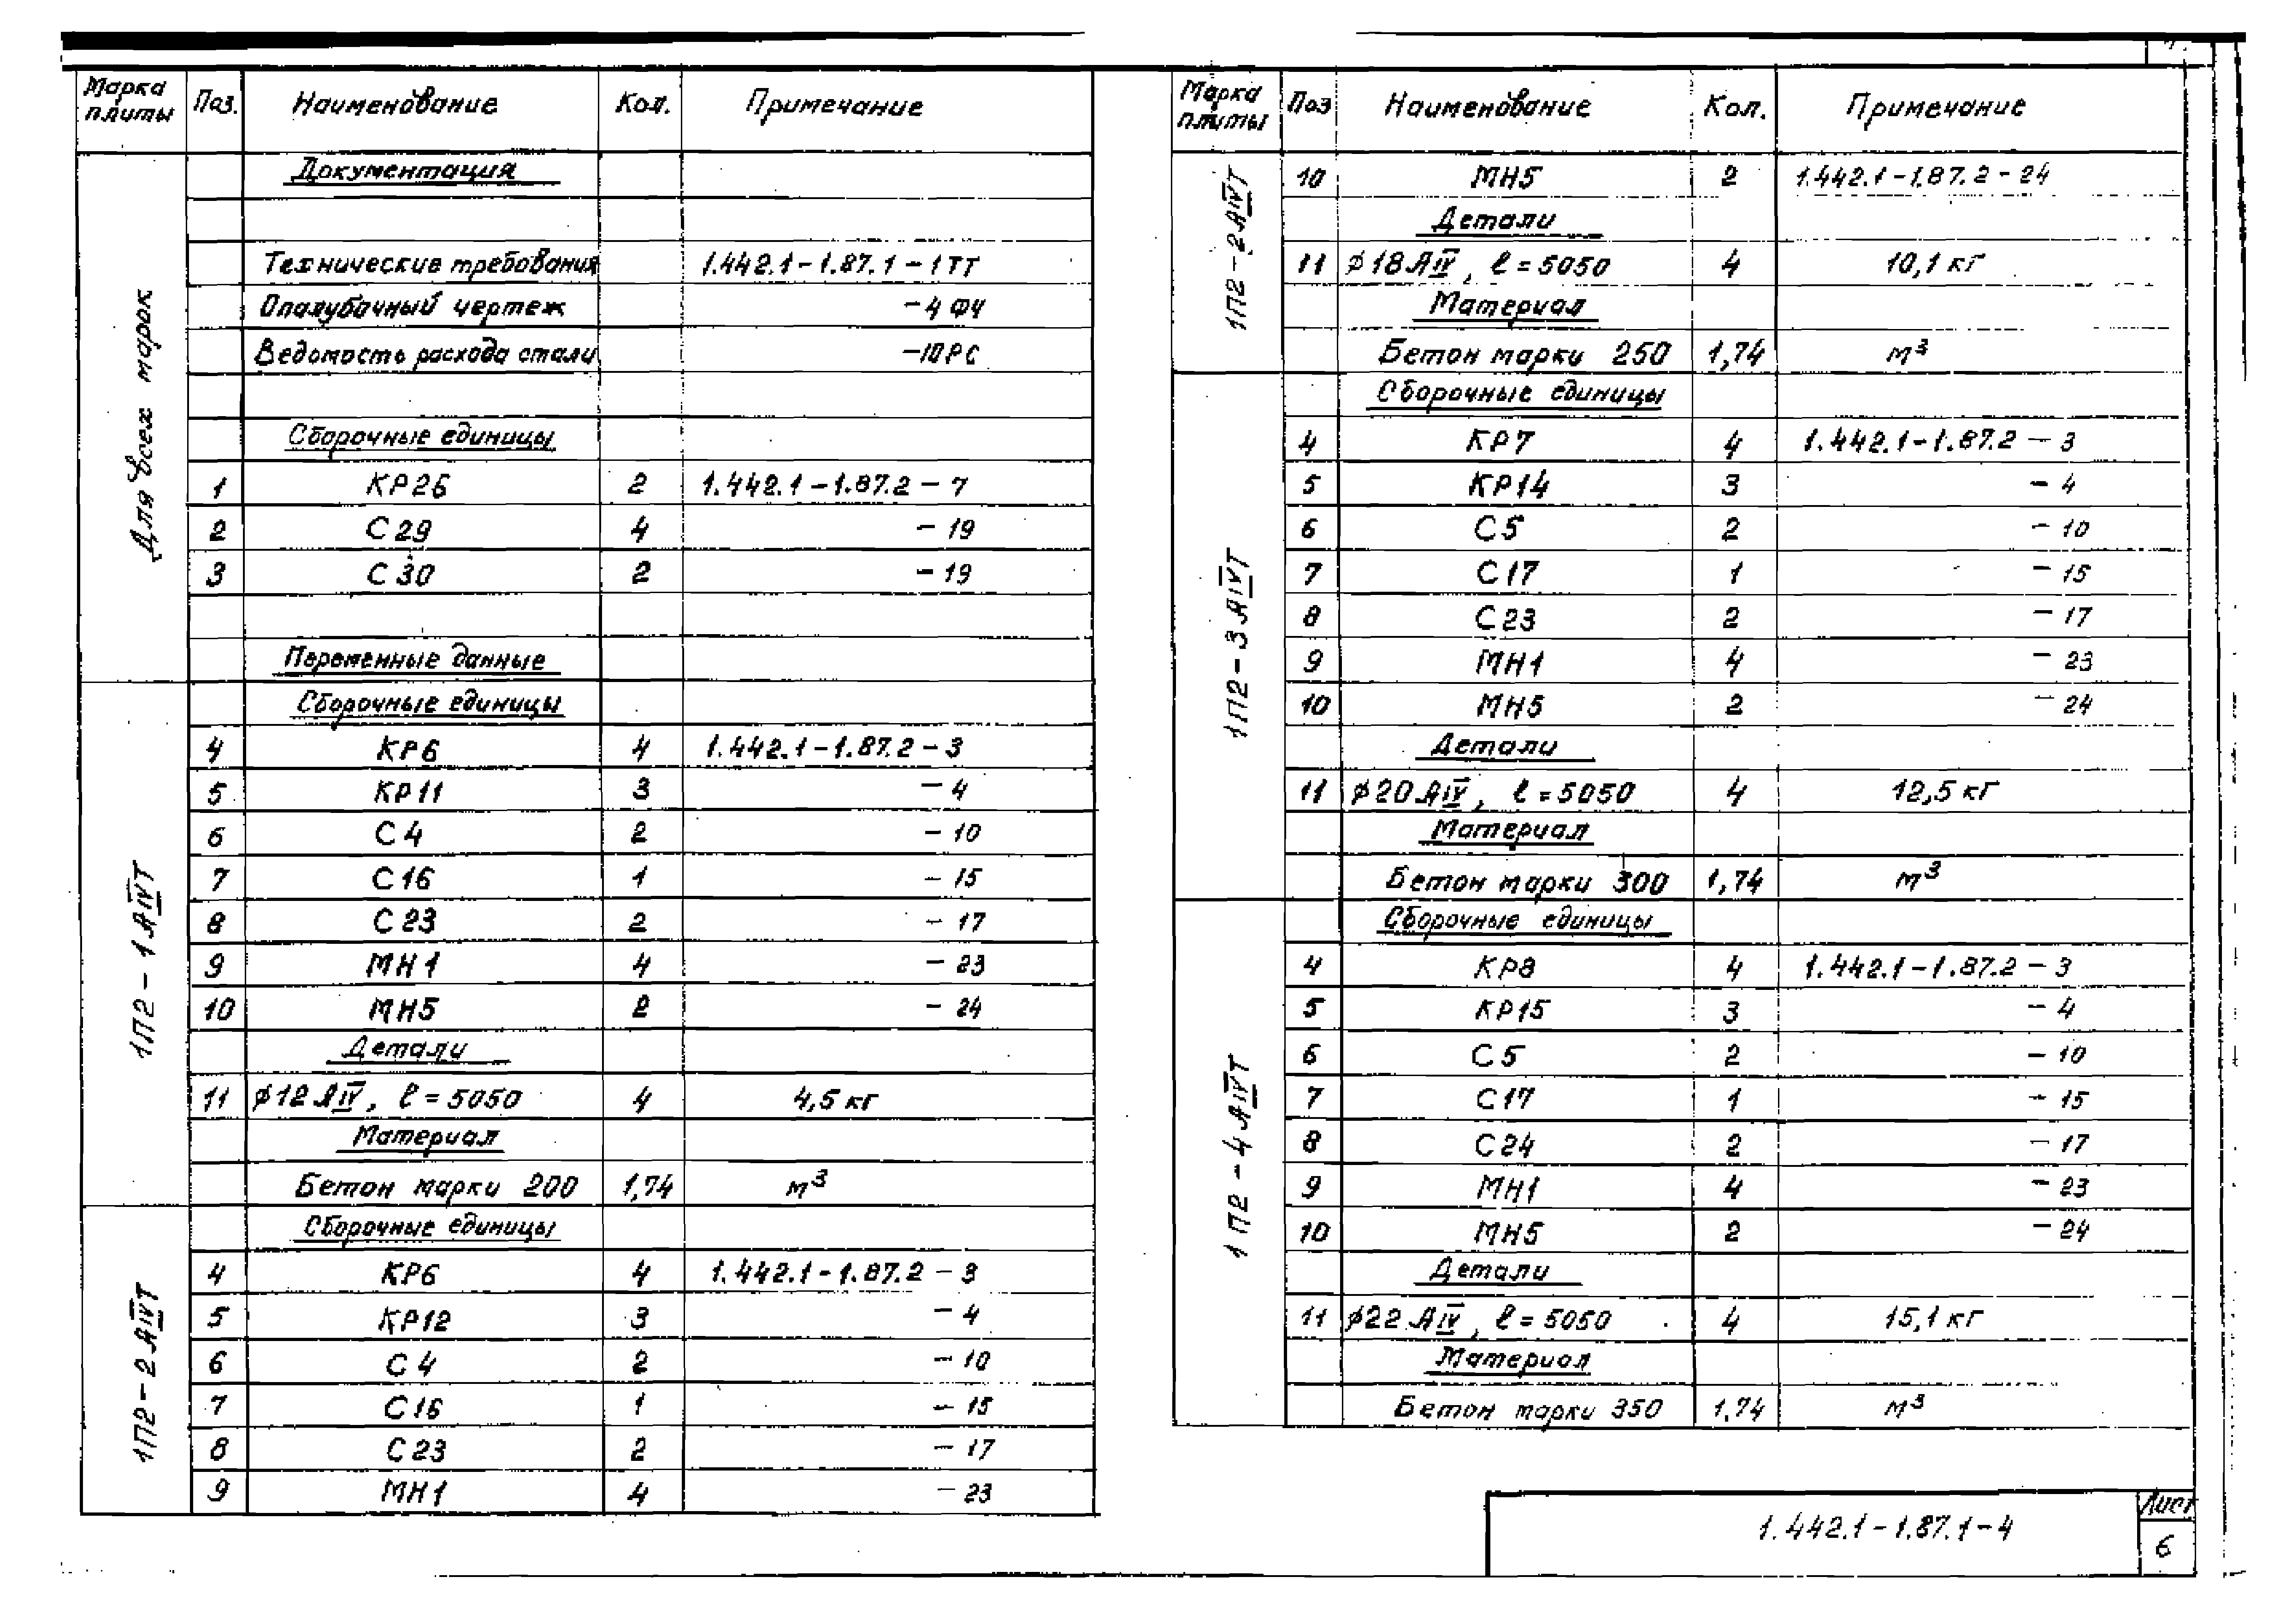 Марка плиты Поз. Наименование Кол. Примечание
Для всех марок
Документация
Технические требования 1.442.1-1.87.1-1ТТ
Опалубочный чертеж -4ФЧ
Ведомость расхода стали -10РС
Сборочные единицы
1 КР26 2 1.442.1-1.87.2-7
2 С29 4 -19
3 С30 2 -19
Переменные данные
1П2-1АIVТ
Сборочные единицы
4 КР6 4 1.442.1-1.87.2-3
5 КР11 3 -4
6 С4 2 -10
7 С16 1 -15
8 С23 2 -17
9 МН1 4 -23
10 МН5 2 -24
Детали
11 ϕ12АIV, ℓ=5050 4 4,5кг
Материал
Бетон марки 200 1,74 м³
1П2-2АIVТ
Сборочные единицы
4 КР6 4 1.442.1-1.87.2-3
5 КР12 3 -4
6 С4 2 -10
7 С16 1 -15
8 С23 2 -17
9 МН1 4 -23
Марка плиты Поз Наименование Кол. Примечание
1П2-2АIVТ
10 МН5 2 1.442.1-1.87.2-24
Детали
11 ϕ18АIV, ℓ=5050 4 10,1кг
Материал
Бетон марки 250 1,74 м³
1П2-3АIVТ
Сборочные единицы
4 КР7 4 1.442.1-1.87.2-3
5 КР14 3 -4
6 С5 2 -10
7 С17 1 -15
8 С23 2 -17
9 МН1 4 -23
10 МН5 2 -24
Детали
11 ϕ20АIV, ℓ=5050 4 12,5кг
Материал
Бетон марки 300 1,74 м³
1П2-4АIVТ
Сборочные единицы
4 КР8 4 1.442.1-1.87.2-3
5 КР15 3 -4
6 С5 2 -10
7 С17 1 -15
8 С24 2 -17
9 МН1 4 -23
10 МН5 2 -24
Детали
11 ϕ22АIV, ℓ=5050 4 15,1кг
Материал
Бетон марки 350 1,74 м³
1.442.1-1.87.1-4
Лист
6